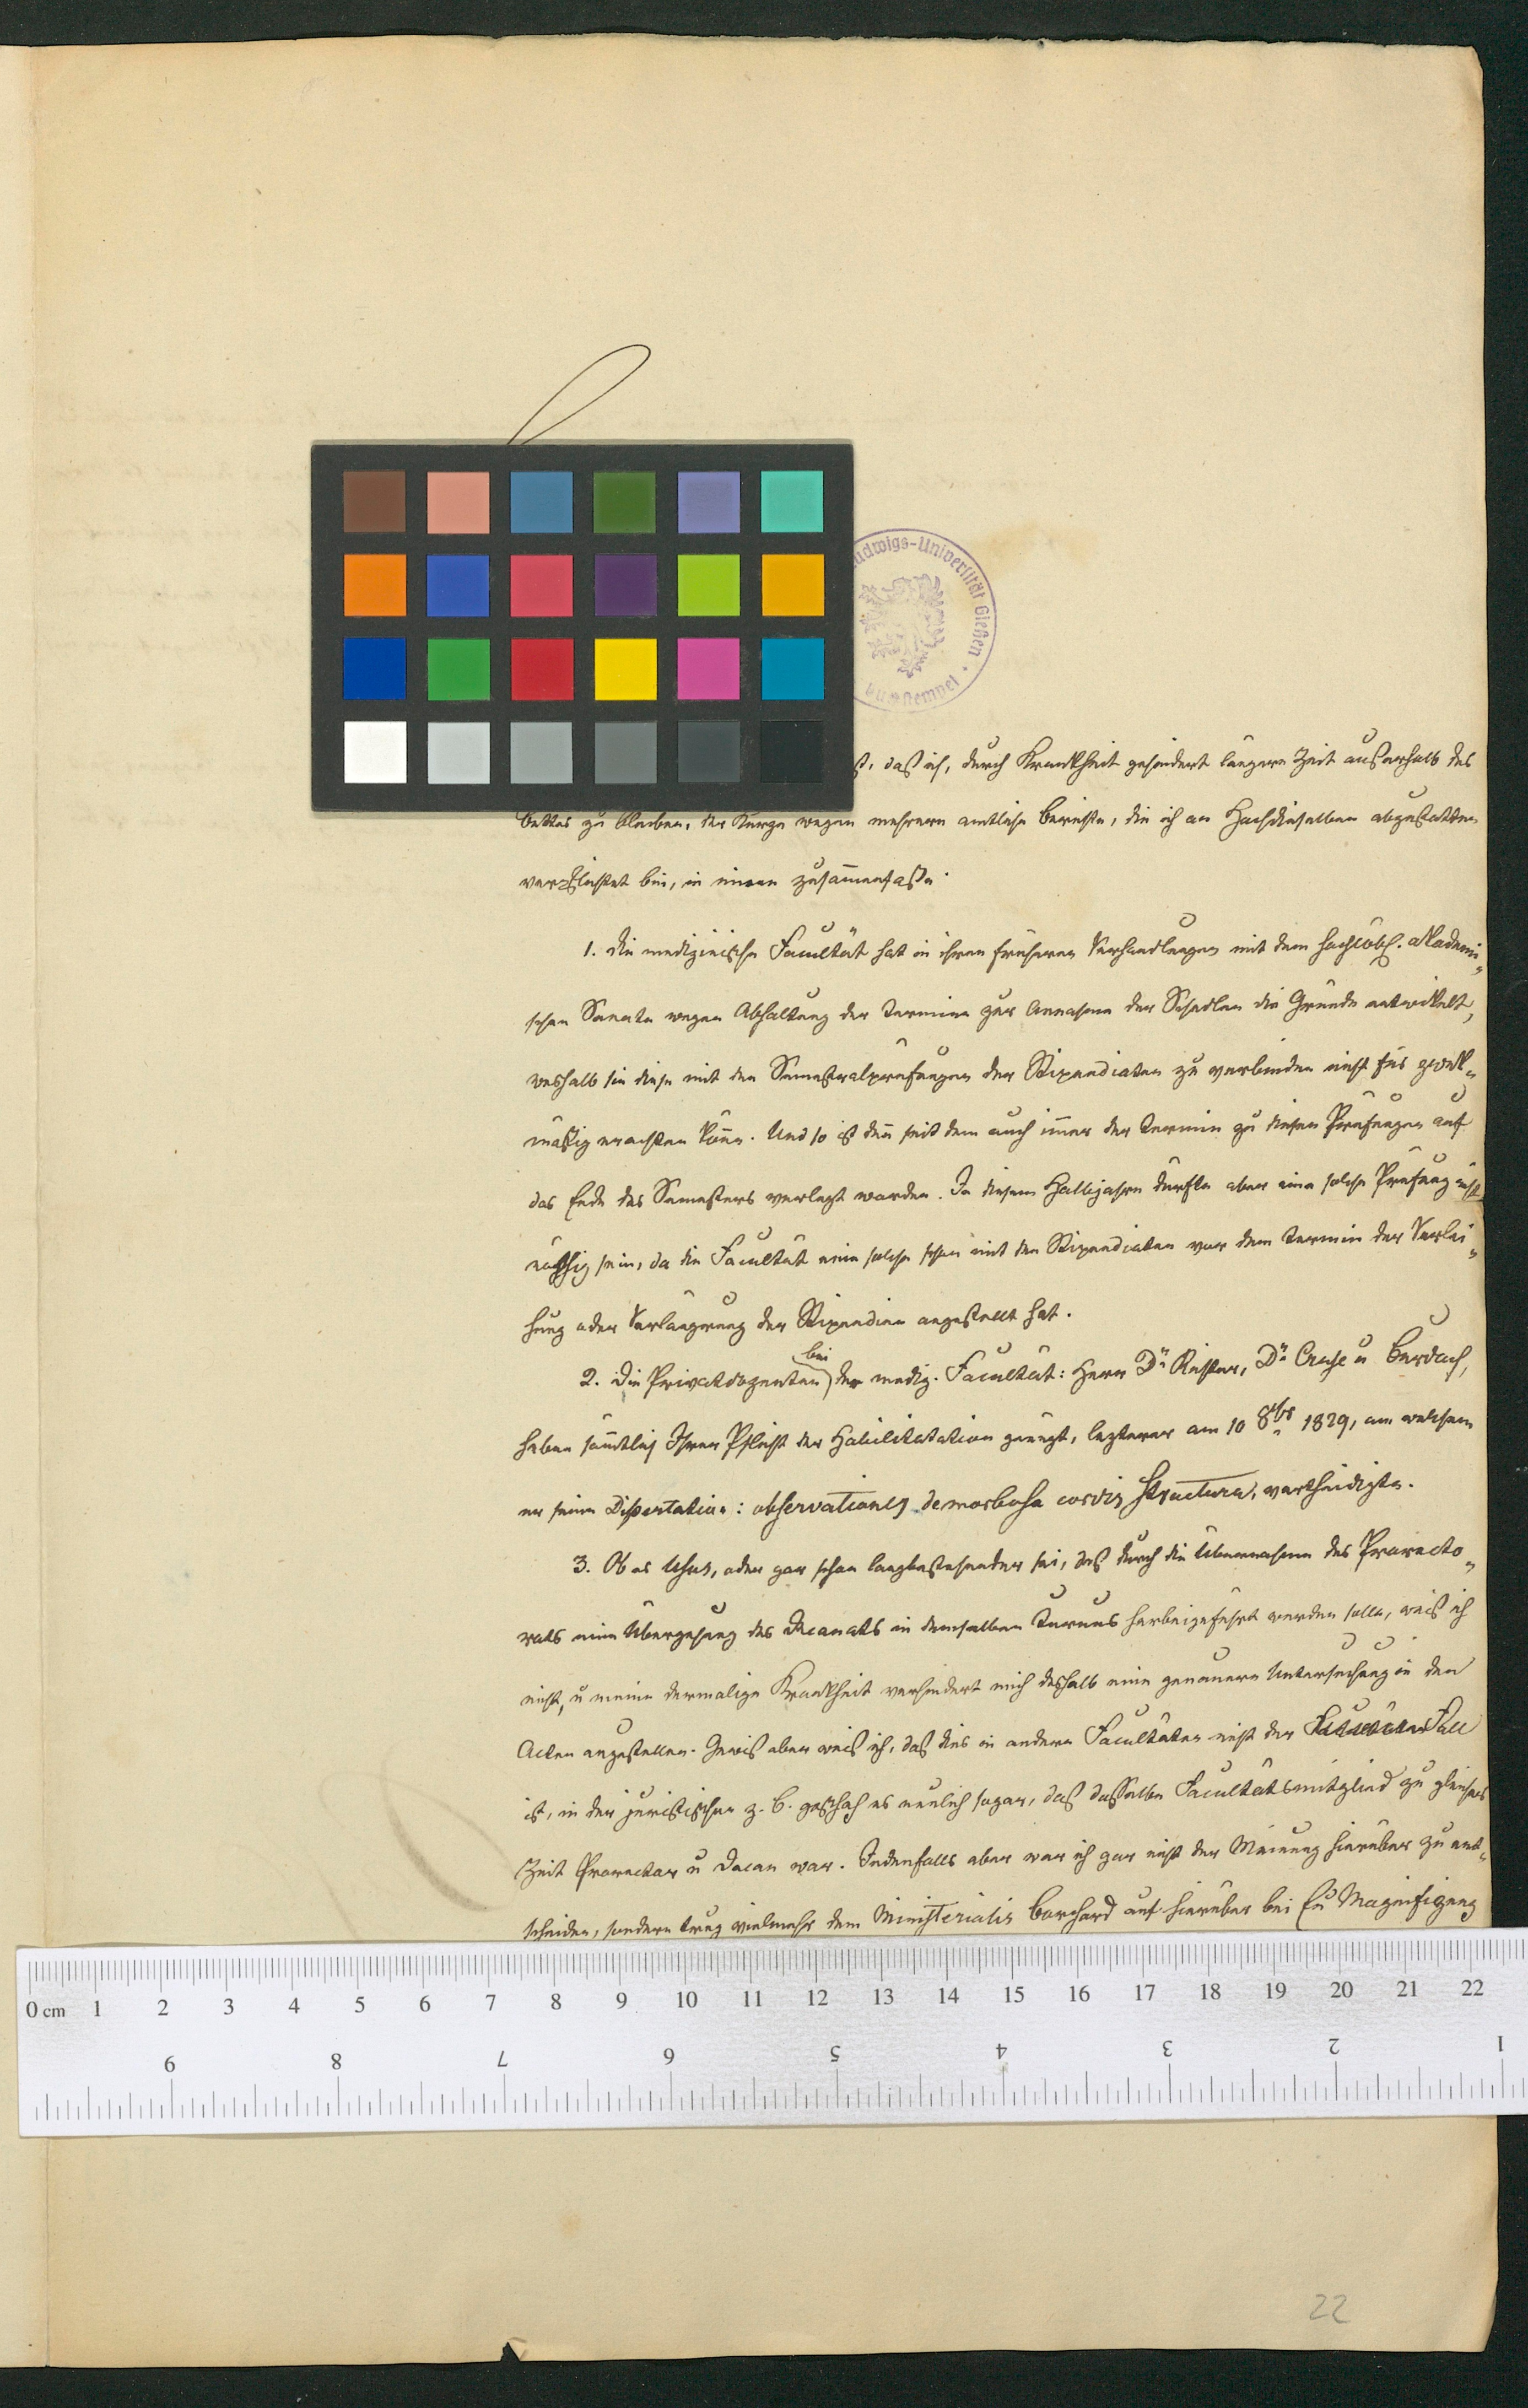 udwigs-Universität Gießen
stempel
ß, daß ich, durch Krankheit gehindert längere Zeit außerhalb des
Bettes zu bleiben, der Kürze wegen mehrere amtliche Berichte, die ich an Hochdieselben abzustatten
verpflichtet bin, in einen zusam̅enfaße.
1. Die medizinische Facultät hat in ihren früheren Verhandlungen mit dem hochlöbl. Akademi-
schen Senate wegen Abhaltung der Termine zur Annahme der Schedlen die Gründe entwickelt,
weshalb sie diese mit den Semestralprüfungen der Stipendiaten zu verbinden nicht für zweck-
mäßig erachten kön̅e. Und so ist den̅ seit dem auch im̅er der Termin zu diesen Prüfungen auf
das Ende des Semesters verlegt worden. In diesem Halbjahre dürfte aber eine solche Prüfung nicht
nöthig sein, da die Facultät eine solche schon mit den Stipendiaten vor dem Termin der Verlei-
hung oder Verlängrung der Stipendien angestellt hat.
bei
2. Die Privatdozenten der mediz. Facultät: Herr Dr Richter, Dr Cruse u Burdach,
haben säm̅tlich Ihrer Pflicht der Habilitatation genügt, lezterer am 10 8br 1829, an welchem
er seine Dissertation: observationes de morbosa cordis structura, vertheidigte.
3. Ob es Usus, oder gar schon langbestehender sei, daß durch die Übernahme des Prorecto-
rats eine Übergehung des Decanats in demselben Turnus herbeigeführt werden solle, weiß ich
nicht, u meine dermalige Krankheit verhindert mich deshalb eine genauere Untersuchung in den
Acten anzustellen. Gewiß aber weiß ich, daß dies in andern Facultäten nicht der Fall
ist, in der juristischen z. B. geschah es neulich sogar, daß dasselbe Facultätsmitglied zu gleicher
Zeit Prorector u Decan war. Jedenfalls aber war ich gar nicht der Meinung hierüber zu ent-
scheiden, sondern trug vielmehr dem Ministerialis Borchard auf hierüber bei Eu Magnifizenz
0 cm 1 2 3 4 5 6 7 8 9 10 11 12 13 14 15 16 17 18 19 20 21 22
9 8 7 6 5 4 3 2 1
22